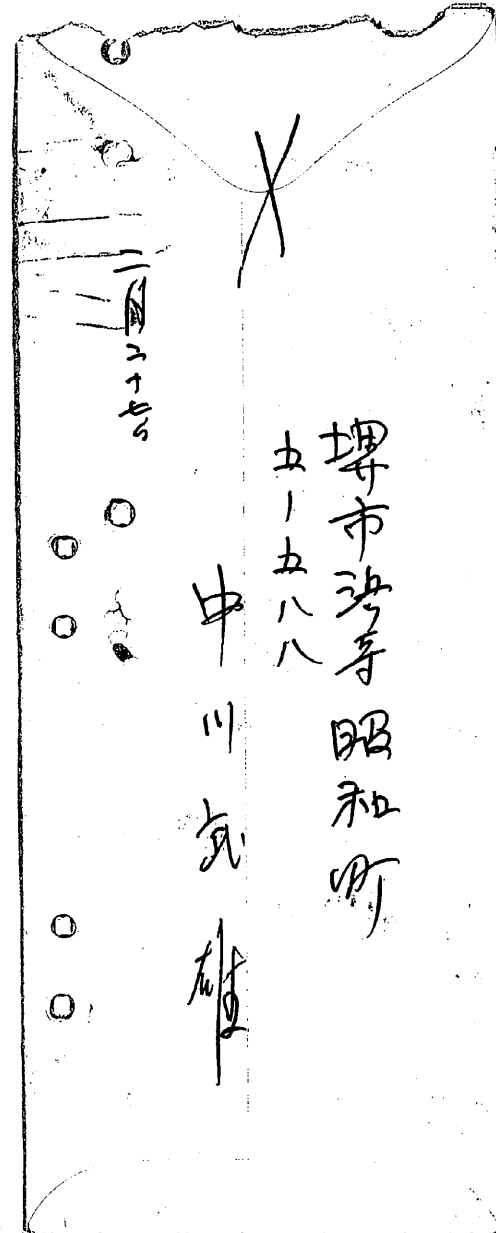 堺市浜寺昭和町
五ー五八八
中川武雄
二月二十七日